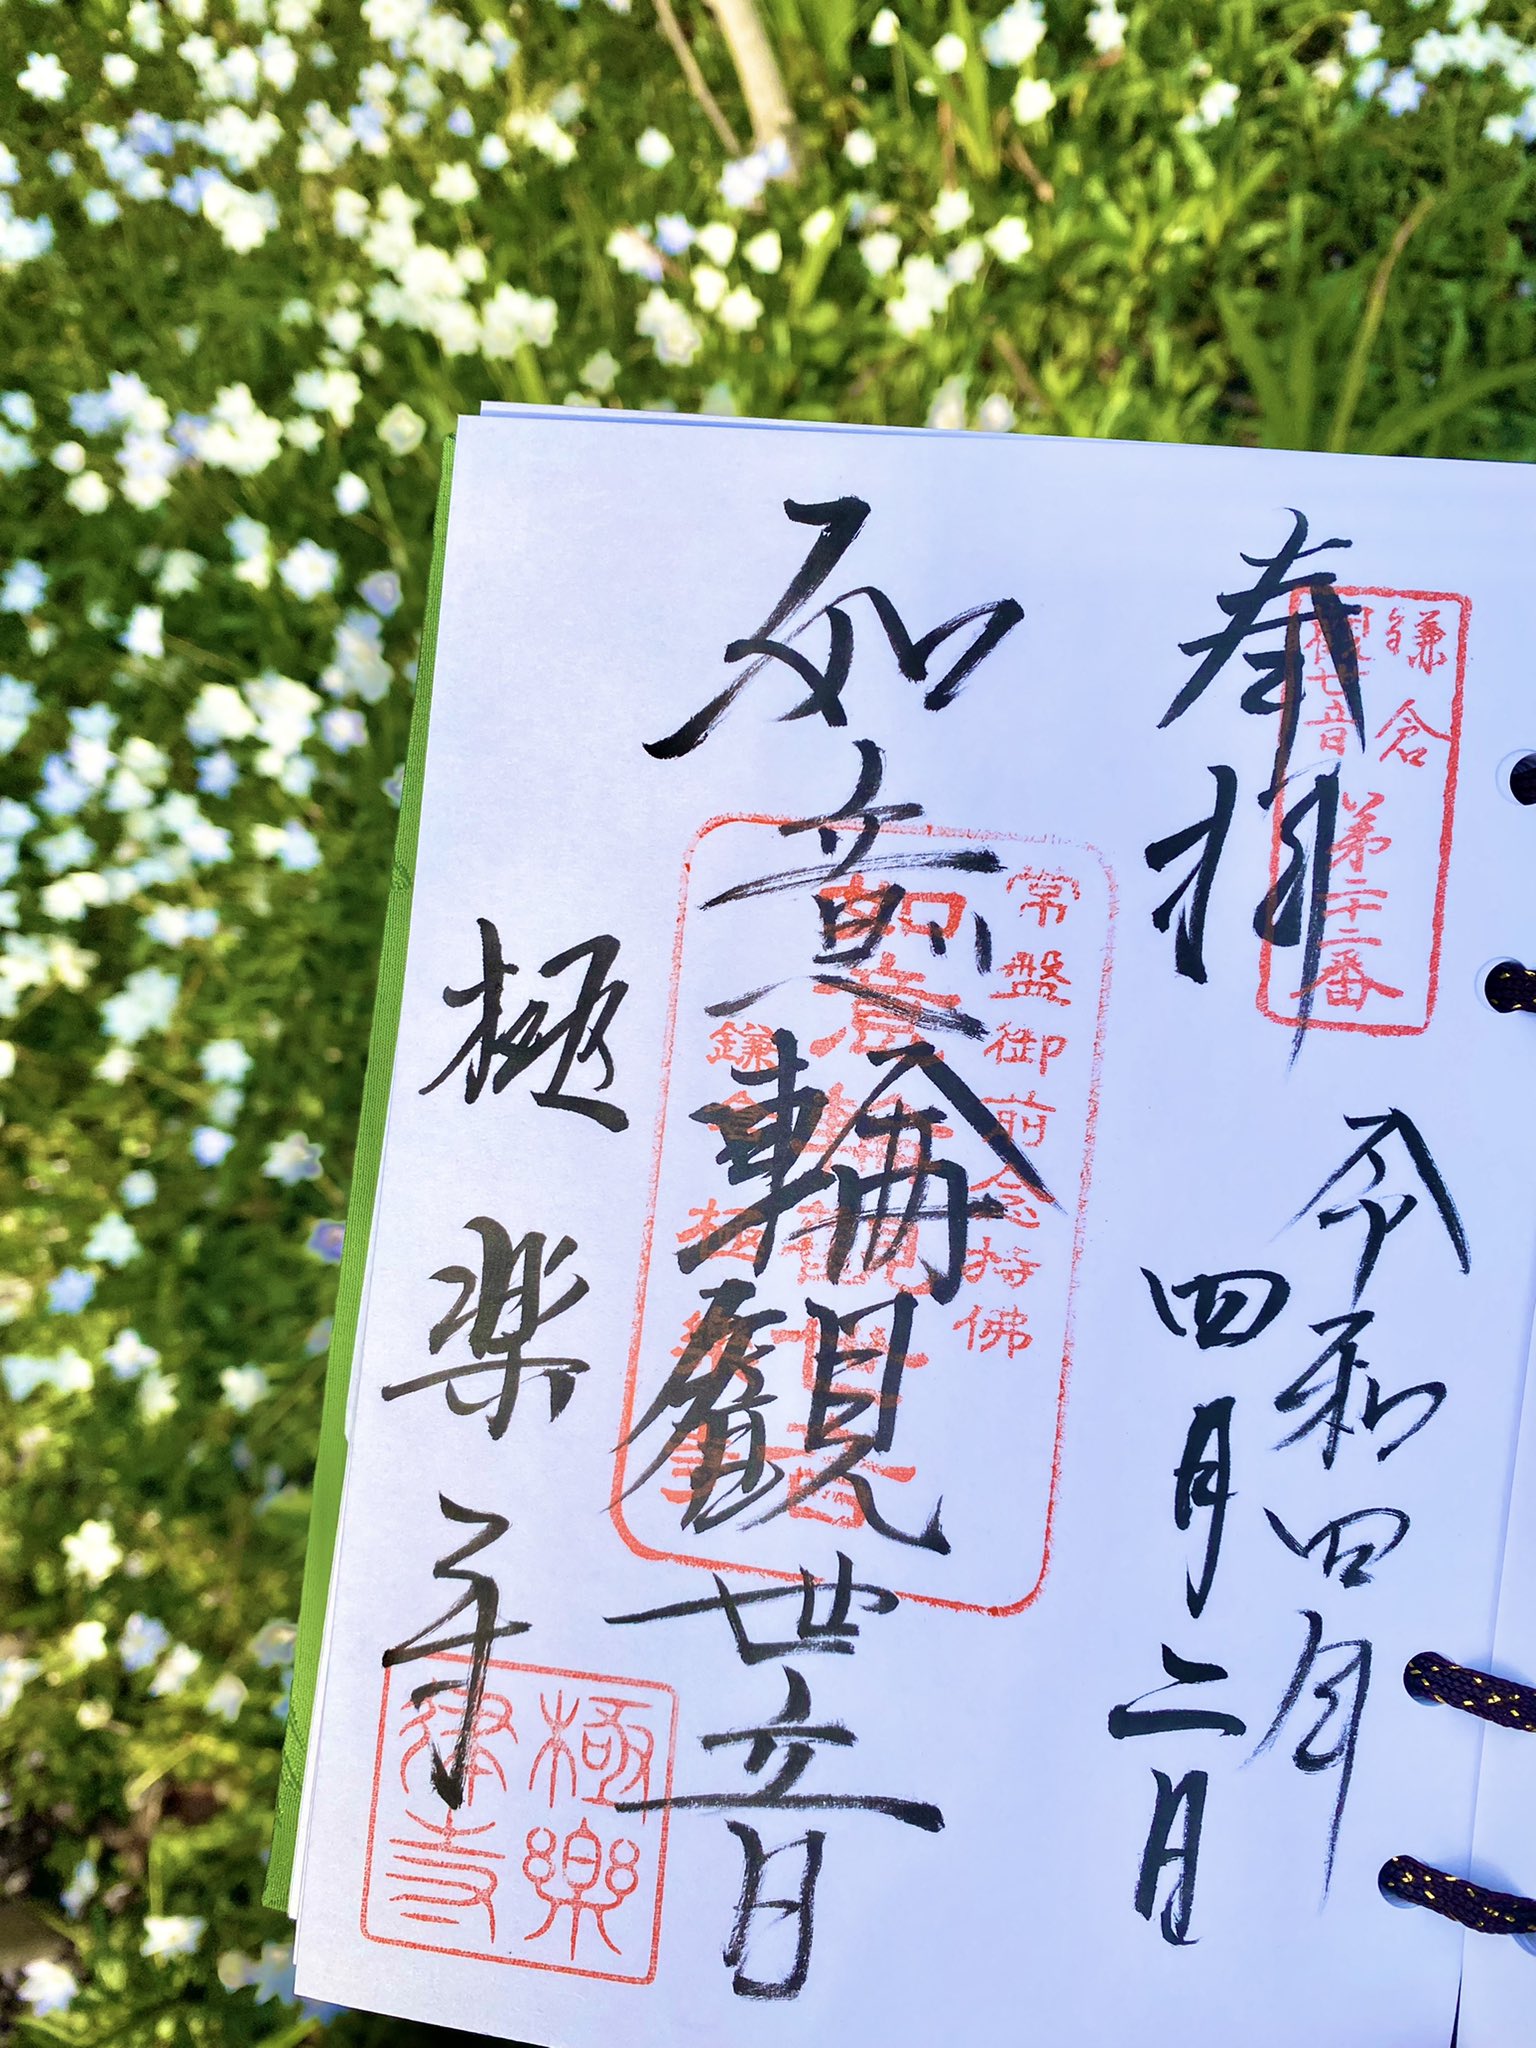 鎌倉
観世音 第二十二番
奉拝
令和四年
四月二日
常盤御前念持佛
如意輪観世音
鎌倉 極楽寺
如意輪觀世音
極楽寺
極樂
律寺